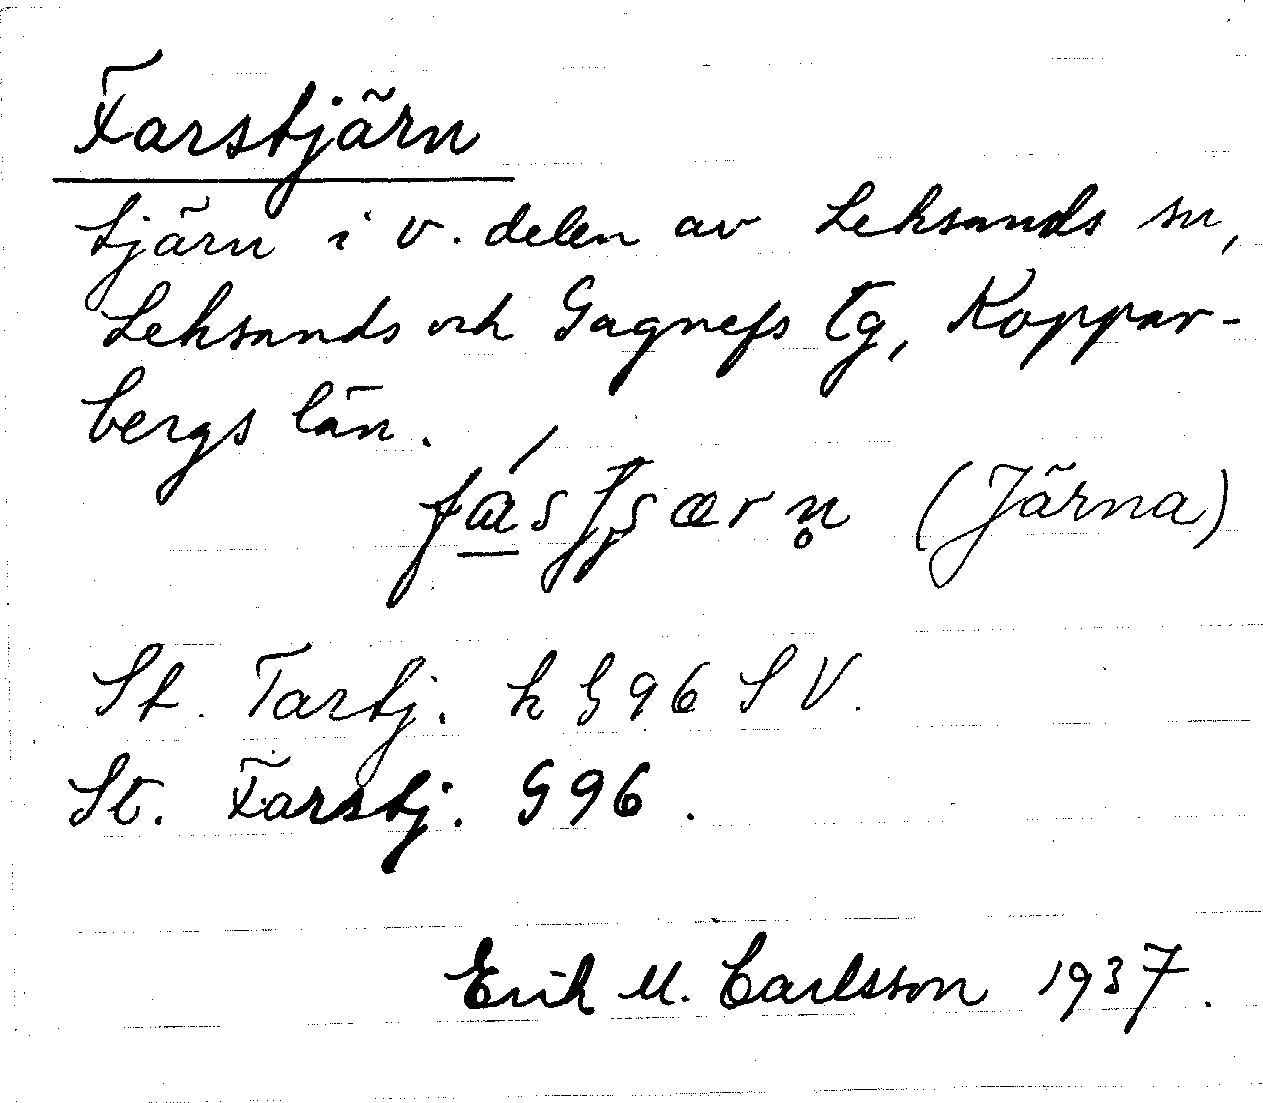 Farstjärn
tjärn i v. delen av Leksands sn,
Leksands och Gagnefs tg, Koppar-
bergs län.
(Järna)
St. Tartj. h G96 SV.
St. Farstj. G96.
Erik M. Carlsson 1937.